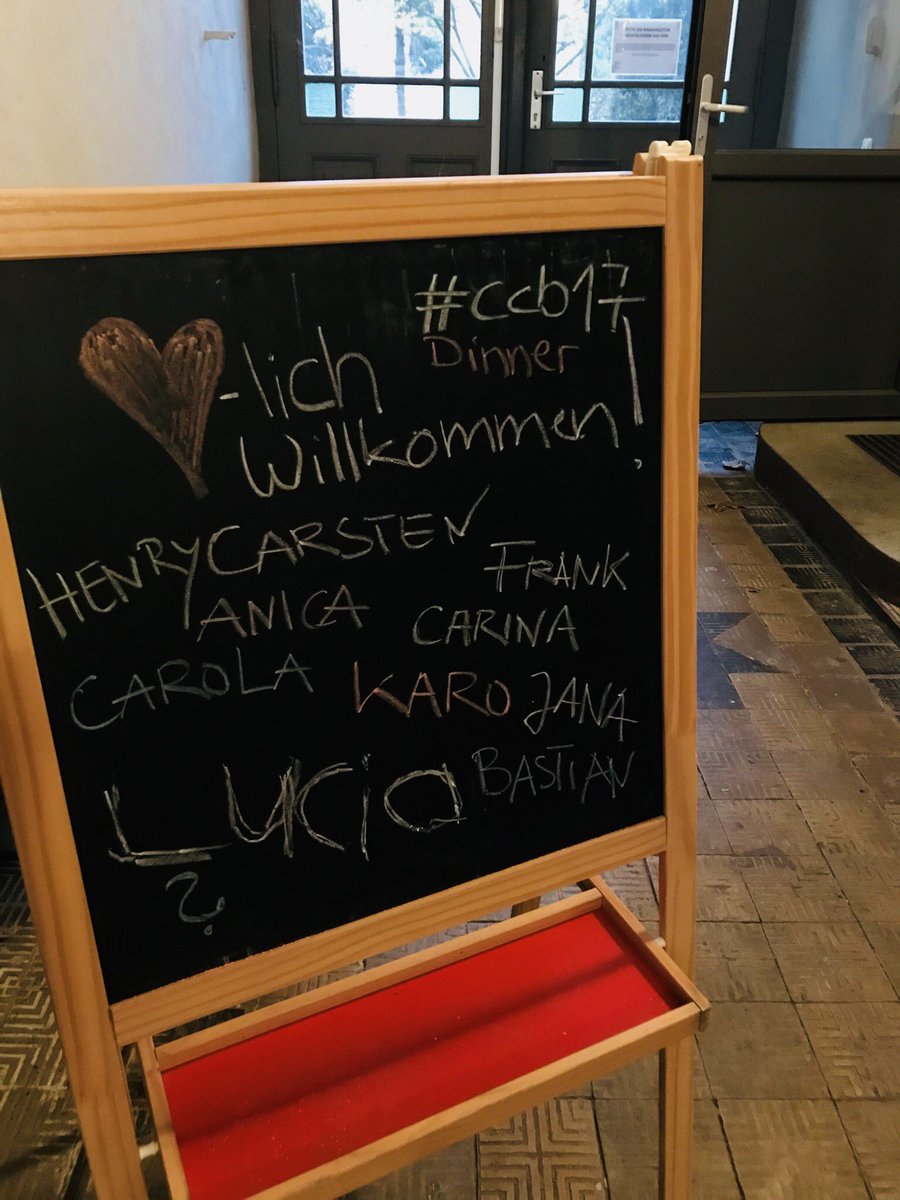 #ccb17
Dinner
-lich
Willkommen!
HENRY CARSTEN
FRANK
ANICA
CARINA
CAROLA
KARO JANA
LUCIA
BASTIAN
?